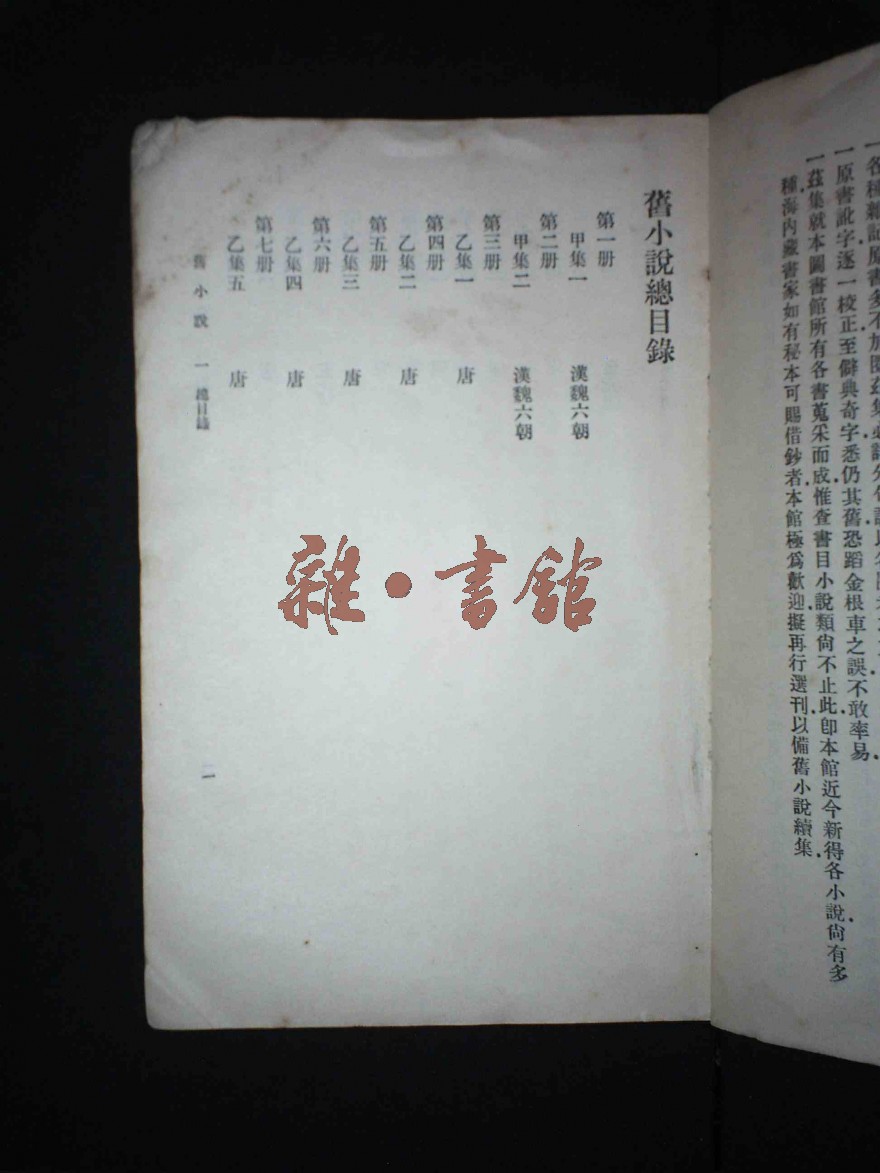 一各種雜記原書多不加
一原書訛字逐一校正至僻典奇字悉仍其舊恐蹈金根車之誤不敢率易.
一茲集就本圖書館所有各書蒐采而成.惟查書目小說類尙不止此.卽本館近今新得各小說.尙有多
種.海內藏書家如有秘本可賜借鈔者.本館極爲歡迎.擬再行選刊.以備舊小說續集.
舊小說總目錄
第一册
甲集一 漢魏六朝
第二册
甲集二 漢魏六朝
第三册
乙集一 唐
第四册
乙集二 唐
第五册
乙集三 唐
第六册
乙集四 唐
第七册
乙集五 唐
舊小說 一 總目錄 一
雜·書館